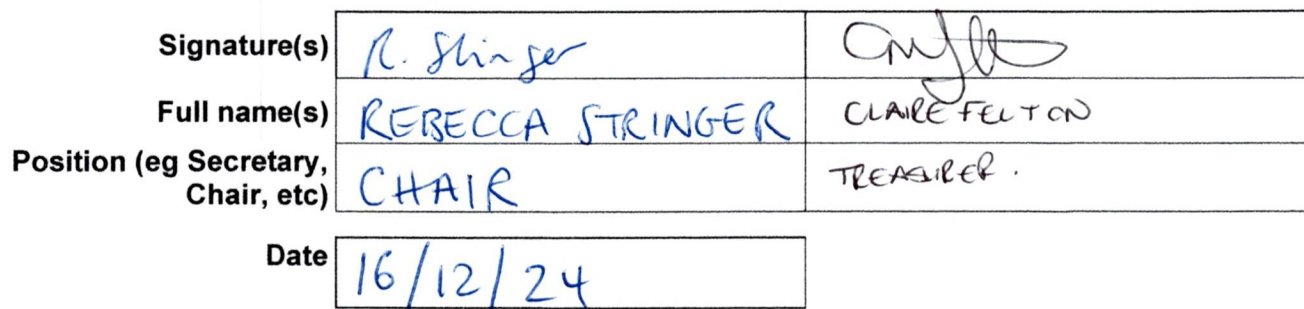 Signature(s) R. Stringer
Full name(s) REBECCA STRINGER CLAIRE FELTON
Position (eg Secretary,
Chair, etc) CHAIR TREASURER.
Date 16/12/24